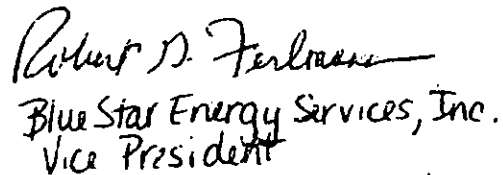 Robert D.
Blue Star Energy Services, Inc.
Vice President